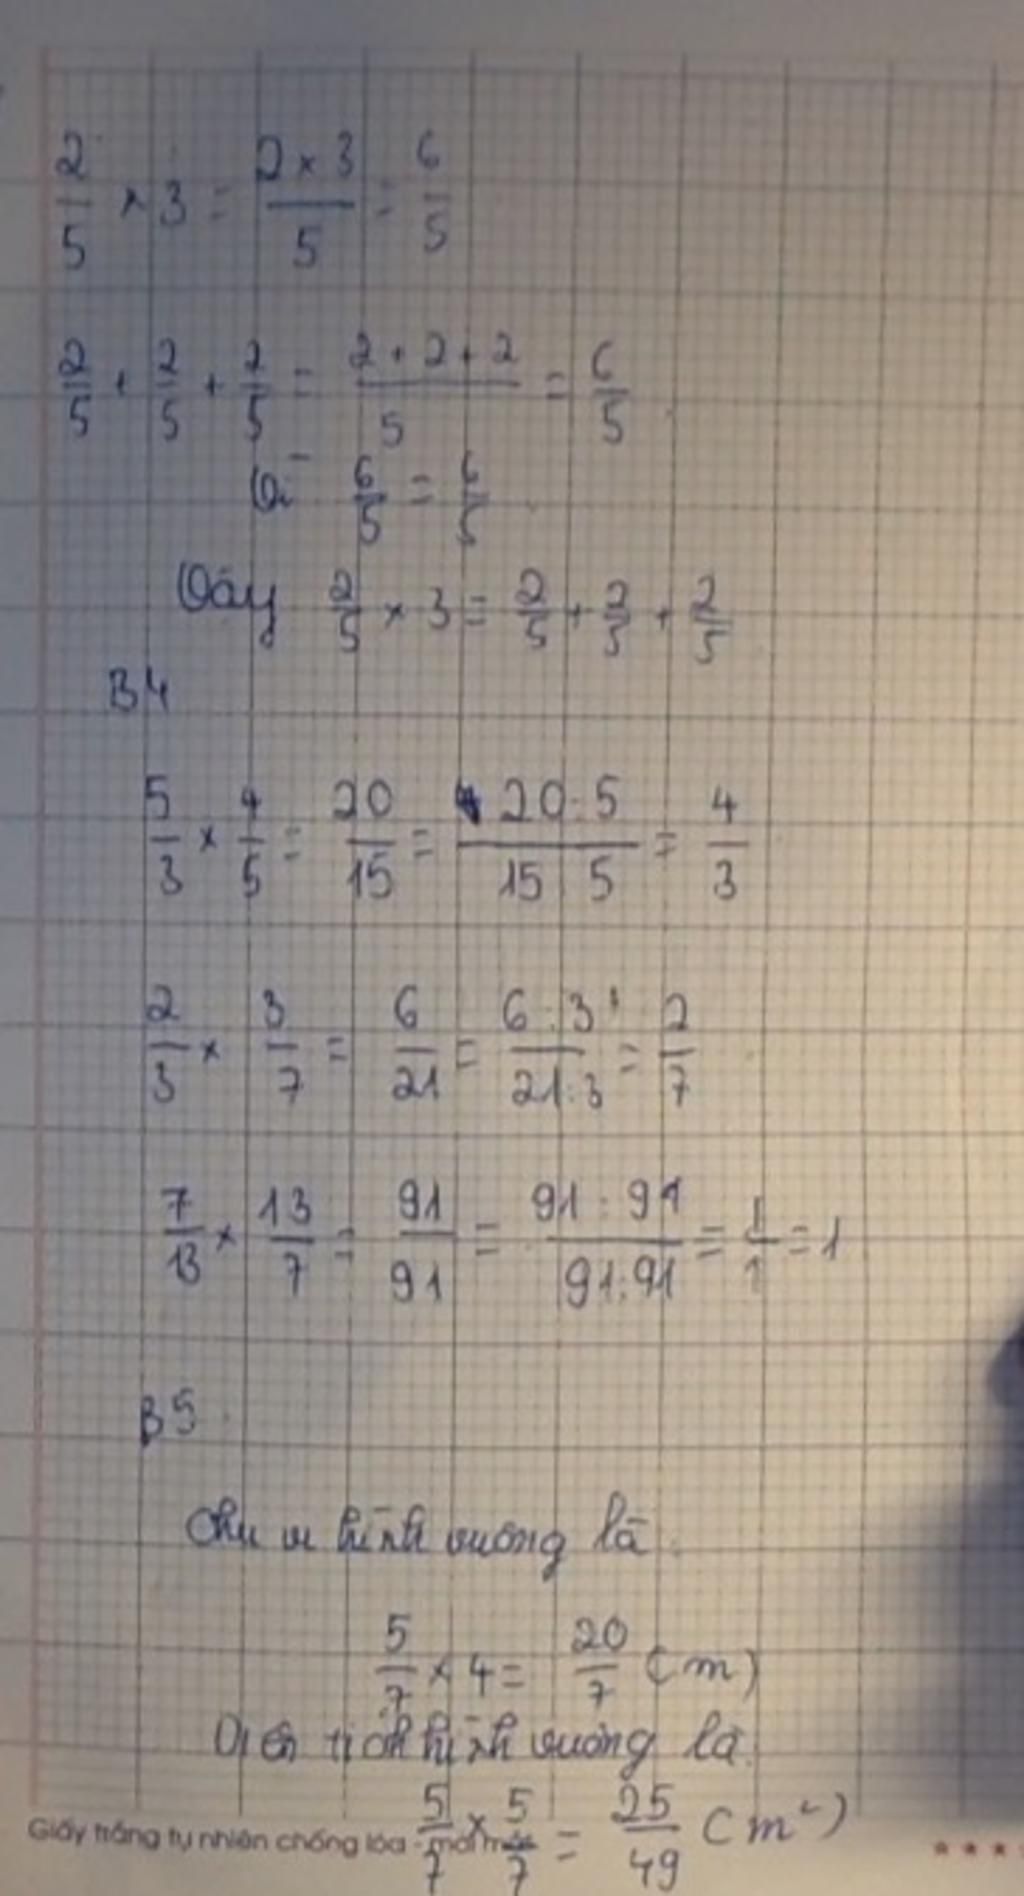 2/5 × 3 = 2 × 3/5 = 6/5
2/5 + 2/5 + 2/5 = 2 + 2 + 2/5 = 6/5
Vì 6/5 = 6/5
Vậy 2/5 × 3 = 2/5 + 2/5 + 2/5
B4
5/3 × 4/5 = 20/15 = 20:5/15:5 = 4/3
2/3 × 3/7 = 6/21 = 6:3/21:3 = 2/7
7/13 × 13/7 = 91/91 = 91:91/91:91 = 1/1 = 1
B5
Chu vi hình vuông là
5/7 × 4 = 20/7 (m)
Diện tích hình vuông là
5/7 × 5/7 = 25/49 (m²)
Giấy trắng tự nhiên chống lóa